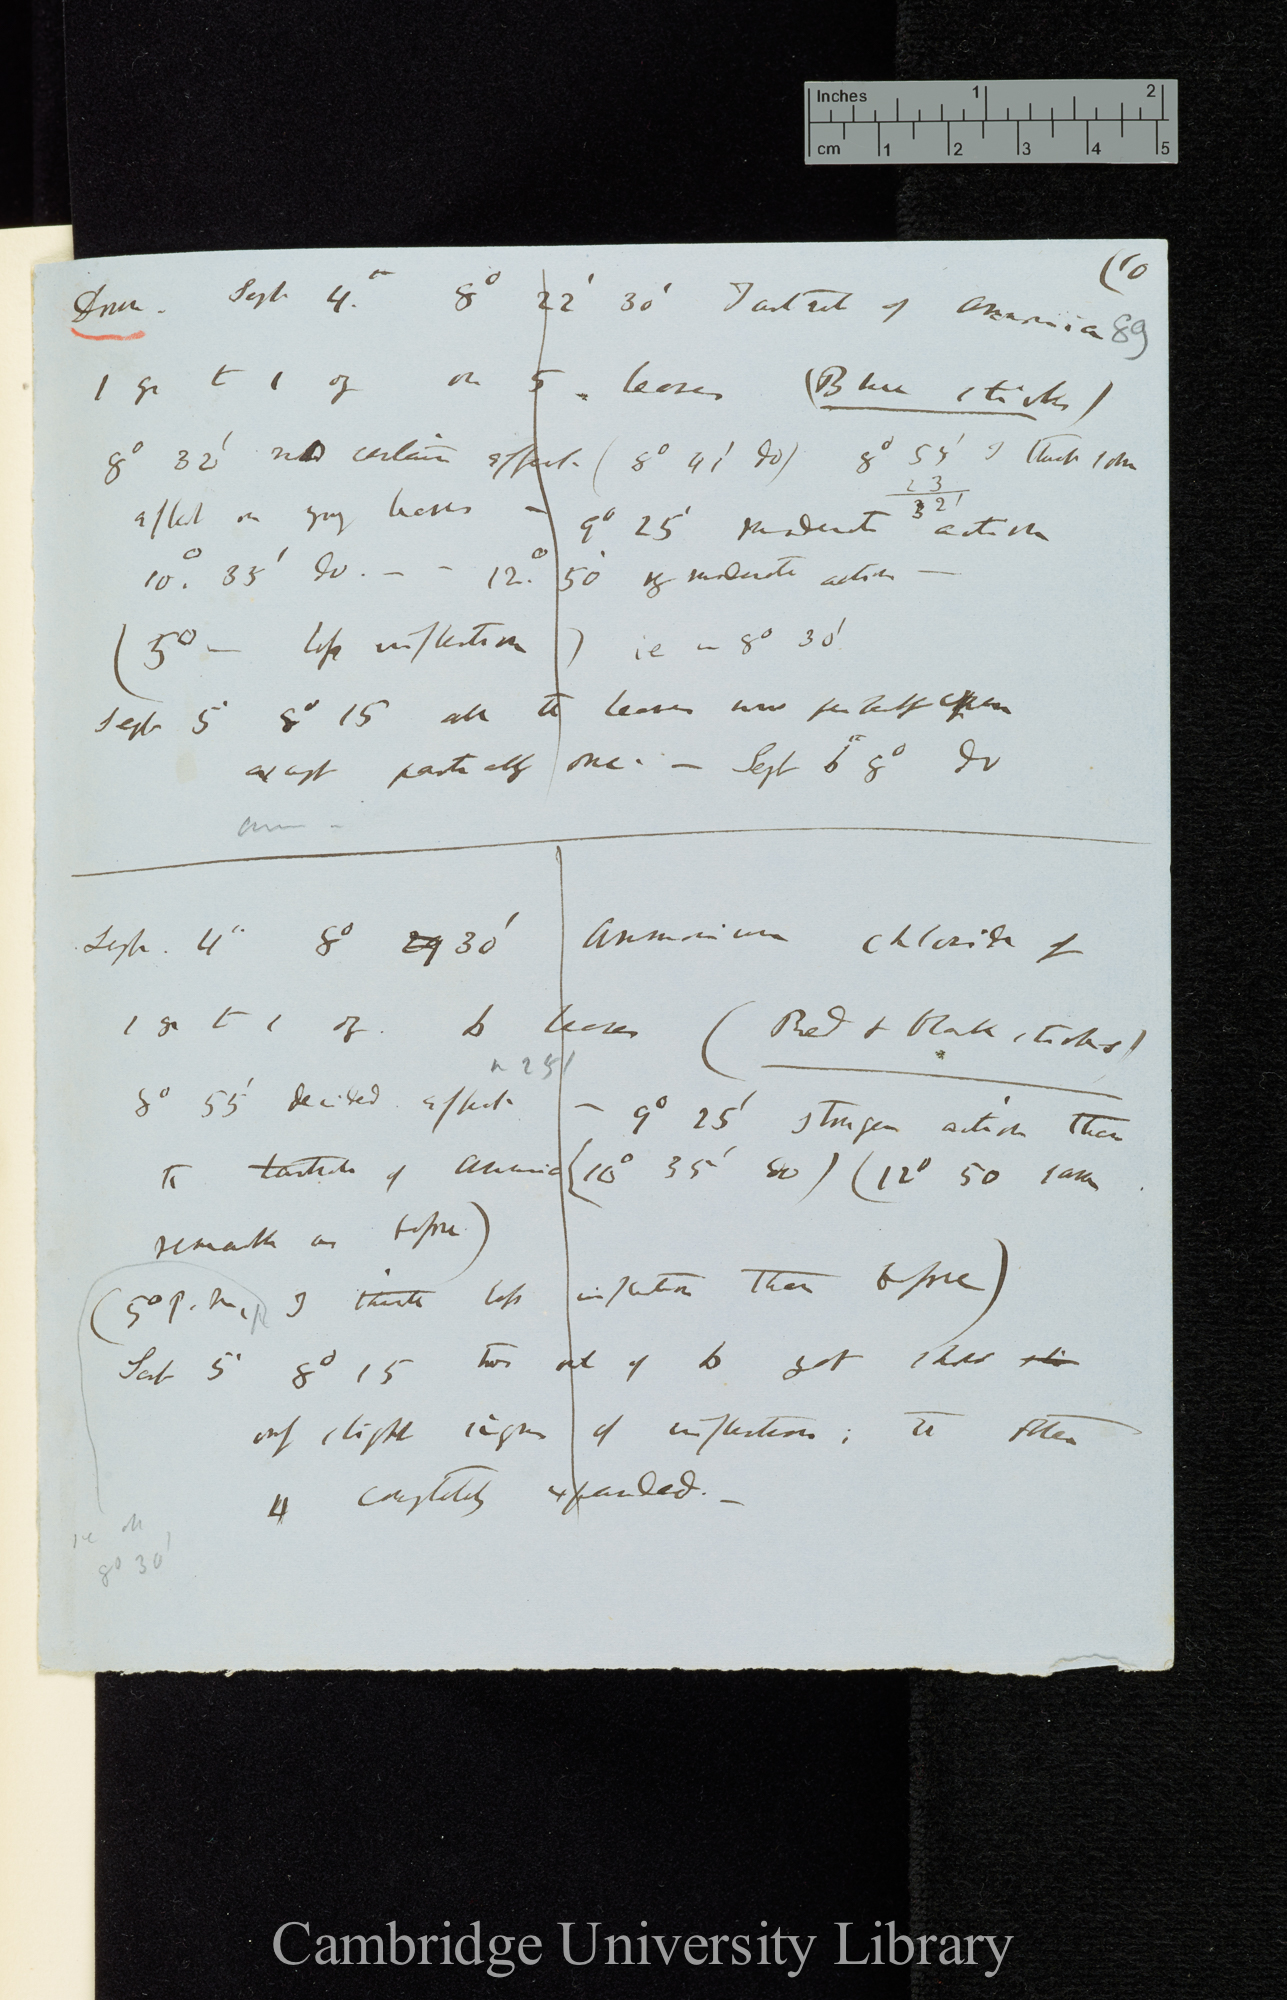 Inches 1 2
cm 1 2 3 4 5
(10
Dros. Sept 4.th 8° 22' 30' Tartrate of Ammonia 89
1 gr to 1 oz on 5 leaves (Blue sticks)
8° 32' no certain effect. (8° 41' do) 8° 55' I think some
23
32'
effect on leaves — 9° 25' moderate action
10°. 35' do. — - 12.° 50' moderate action —
(5° — less inflection) ie in 8° 30'
Sept 5' 8° 15 all the leaves were perfectly open
except partially one. — Sept 6th 8° do
Sept. 4th 8° 29 30' Ammonium chloride of
1 gr to 1 oz. 6 leaves (Red & black sticks)
in 25'
8° 55' decided effect — 9° 25' stronger action than
the tartrate of Ammonia (10° 35' do) (12° 50 same
remark as before)
(5° P.m. I think less inflection than before)
Sept 5' 8° 15 two out of 6 yet show
only slight signs of inflection; the other
4 completely expanded. —
ie in
8° 30'
Cambridge University Library